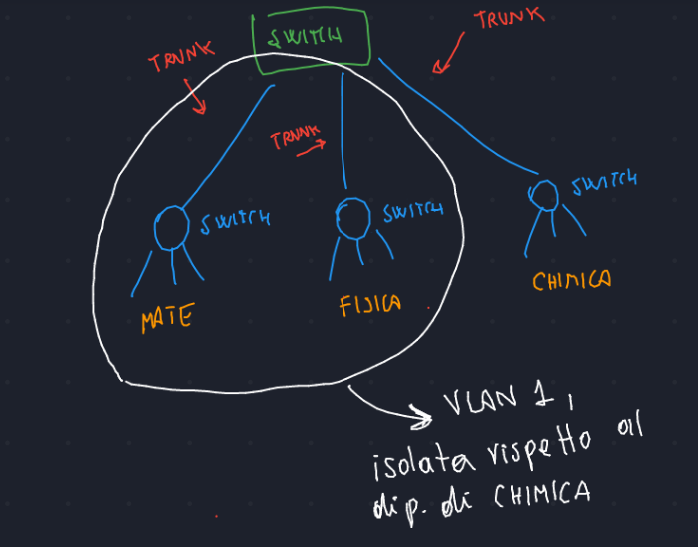 SWITCH
TRUNK
TRUNK
TRUNK
SWITCH
SWITCH
SWITCH
MATE
FISICA
CHIMICA
VLAN 1,
isolata rispetto al
dip. di CHIMICA